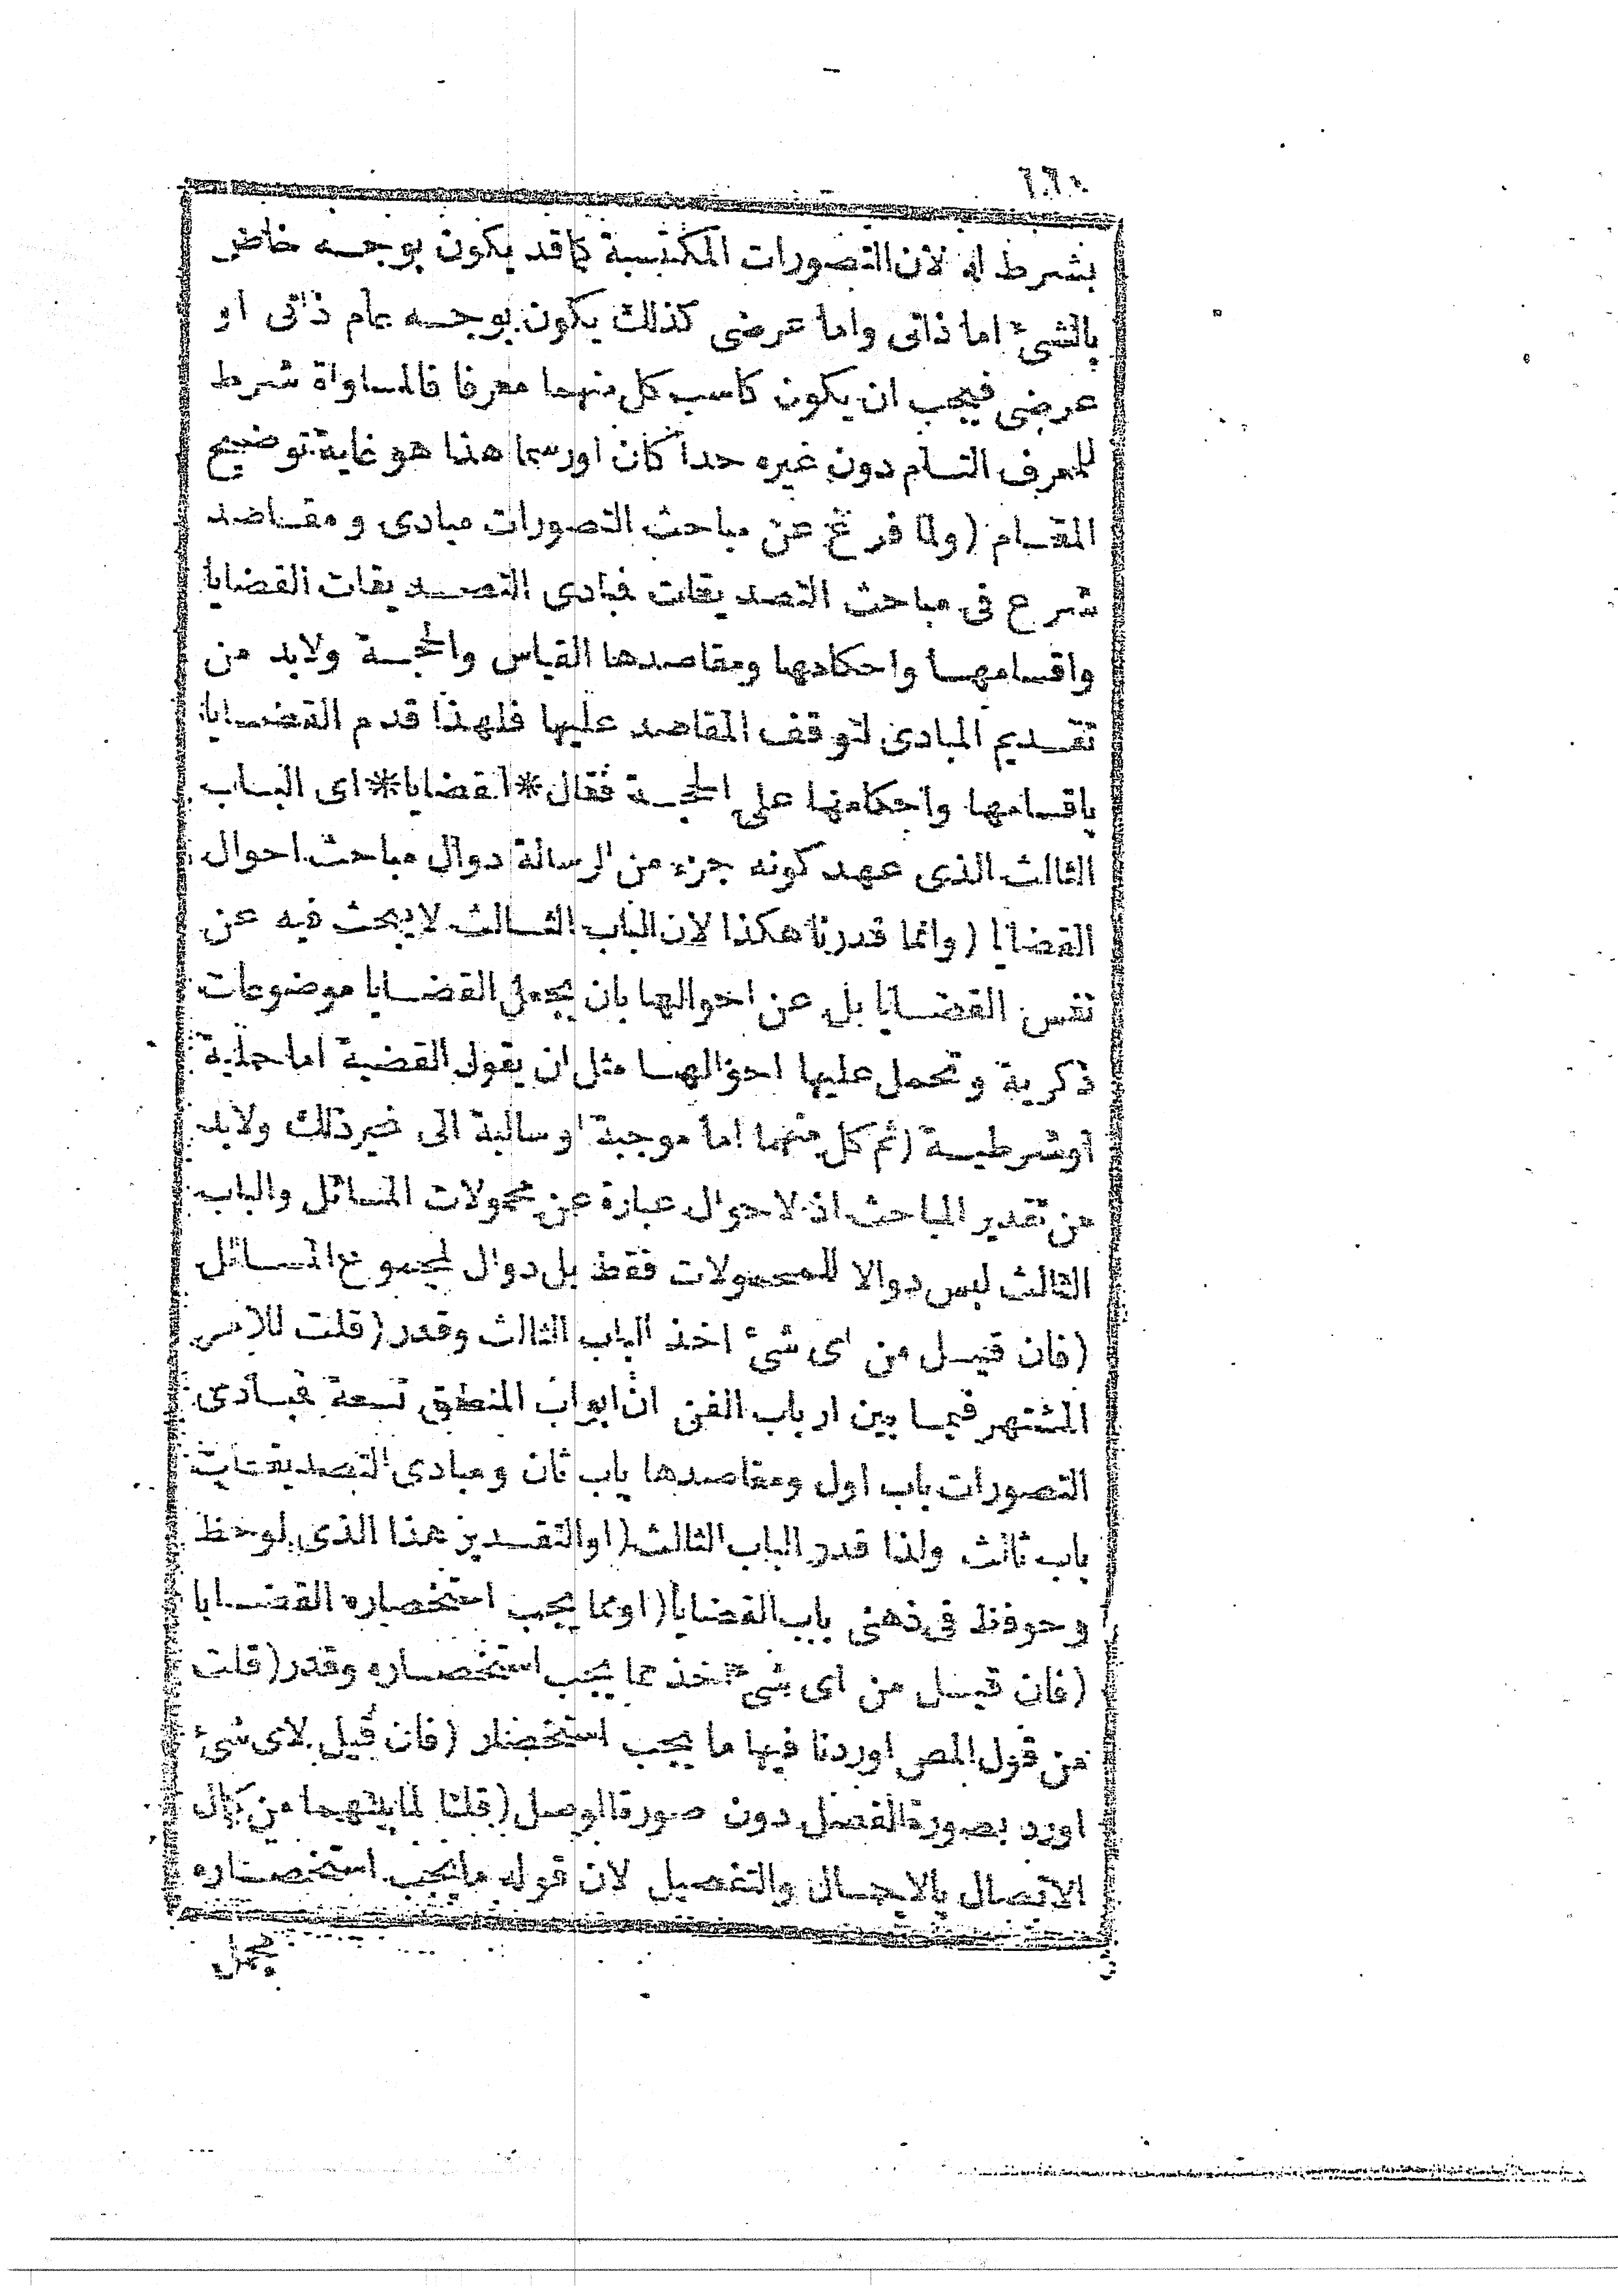 بشرط له لان التصورات المكتسبة كما قد يكون بوجه خاص
بالشئ اما ذاتى واما عرضى كذلك يكون بوجه عام ذاتى او
عرضى فيجب ان يكون كاسب كل منهما معرفا فالمساواة شرط
للمعرف التام دون غيره حدا كان اورسما هذا هو غاية توضيح
المقام (ولما فرغ عن مباحث التصورات مبادى و مقاصد
شرع فى مباحث التصديقات فبادى التصديقات القضايا
واقسامها واحكامها ومقاصدها القياس والحجة ولابد من
تقديم المبادى لتوقف المقاصد عليها فلهذا قدم القضايا
باقسامها واحكامها على الحجة فقال *القضايا* اى الباب
الثالث الذى عهد كونه جزء من الرسالة دوال مباحث احوال
القضايا (وانما قدرنا هكذا لان الباب الثالث لايبحث فيه عن
نفس القضايا بل عن احوالها بان يجعل القضايا موضوعات
ذكرية وتحمل عليها احوالها مثل ان يقول القضية اما حملية
اوشرطية (ثم كل منهما اما موجبة او سالبة الى غير ذلك ولابد
من تقدير المباحث اذ لاحوال عبارة عن محمولات المسائل والباب
الثالث ليس دوالا للمحمولات فقط بل دوال لمجموع المسائل
(فان قيل من اى شئ اخذ الباب الثالث وقدر (قلت للامر
المشتهر فيما بين ارباب الفن ان ابواب المنطق تسعة فبادى
التصورات باب اول ومقاصدها باب ثان ومبادى التصديقات
باب ثالث ولذا قدر الباب الثالث (اوالتقدير هذا الذى لوحظ
وحوفظ فى ذهنى باب القضايا (اومما يجب استحضاره القضايا
(فان قيل من اى شئ اخذ مما يجب استحضاره وقدر (قلت
من قول المص اوردنا فيها ما يجب استحضار (فان قيل لاى شئ
اورد بصورة الفصل دون صورة الوصل (قلنا لما بينهما من كمال
الاتصال بالاجمال والتفصيل لان قوله ما يجب استحضاره
مجمل